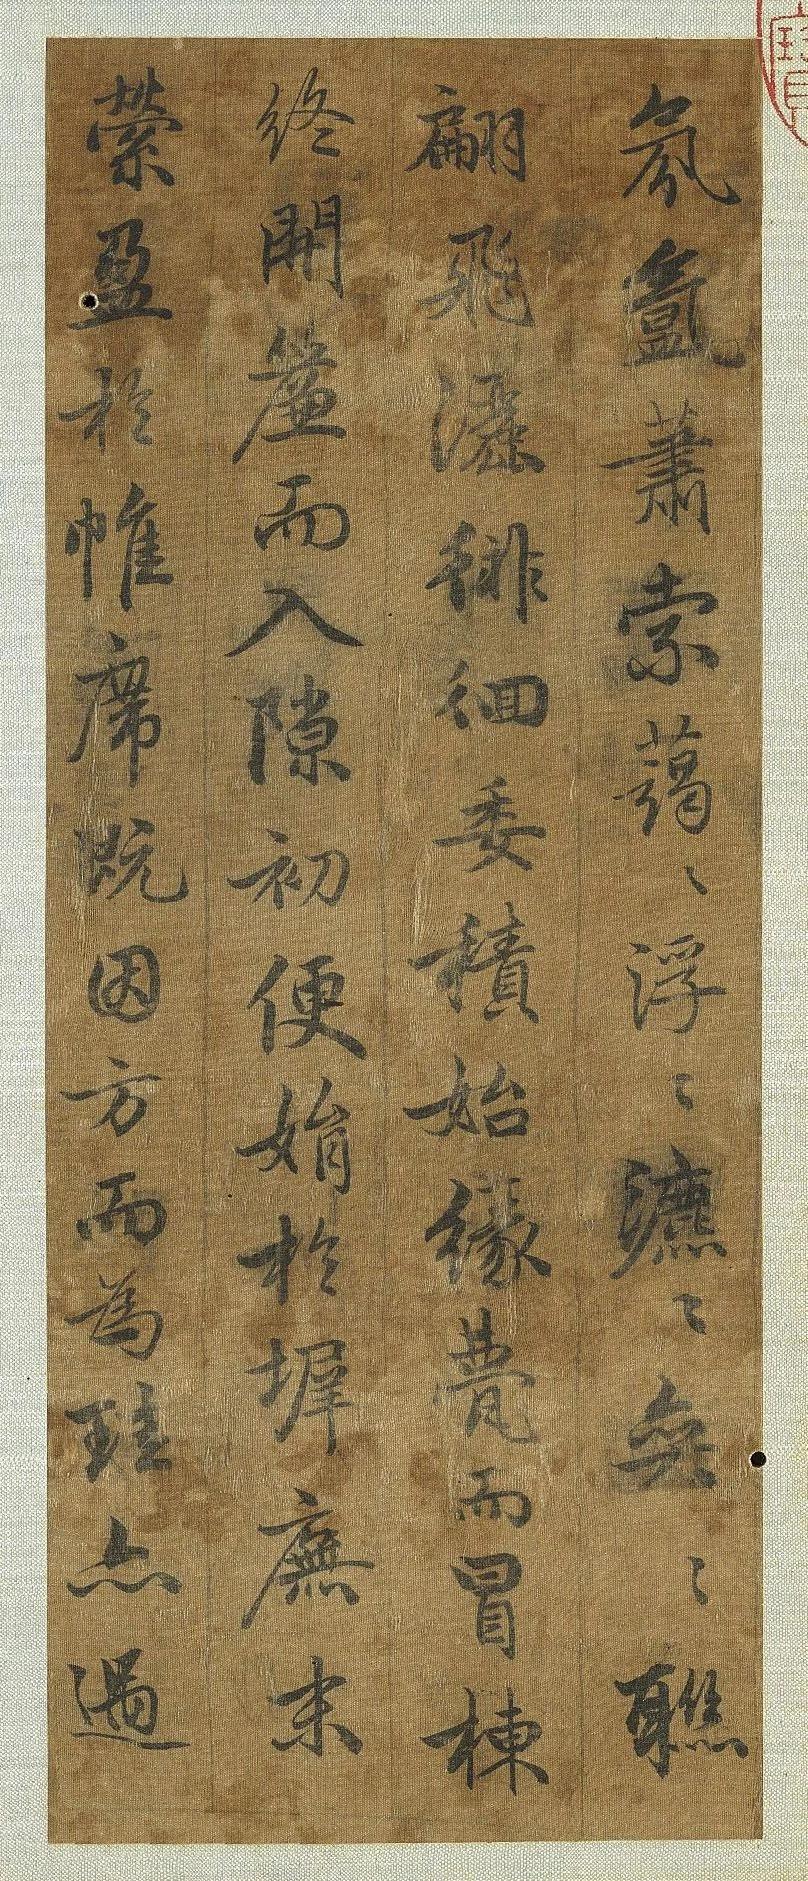 氛氳蕭索藹〻浮〻瀌〻奕〻聯
翩飛灑徘徊委積始緣甍而冒棟
終開簾而入隙初便娟於墀廡末
縈盈於帷席既因方而為珪亦遇